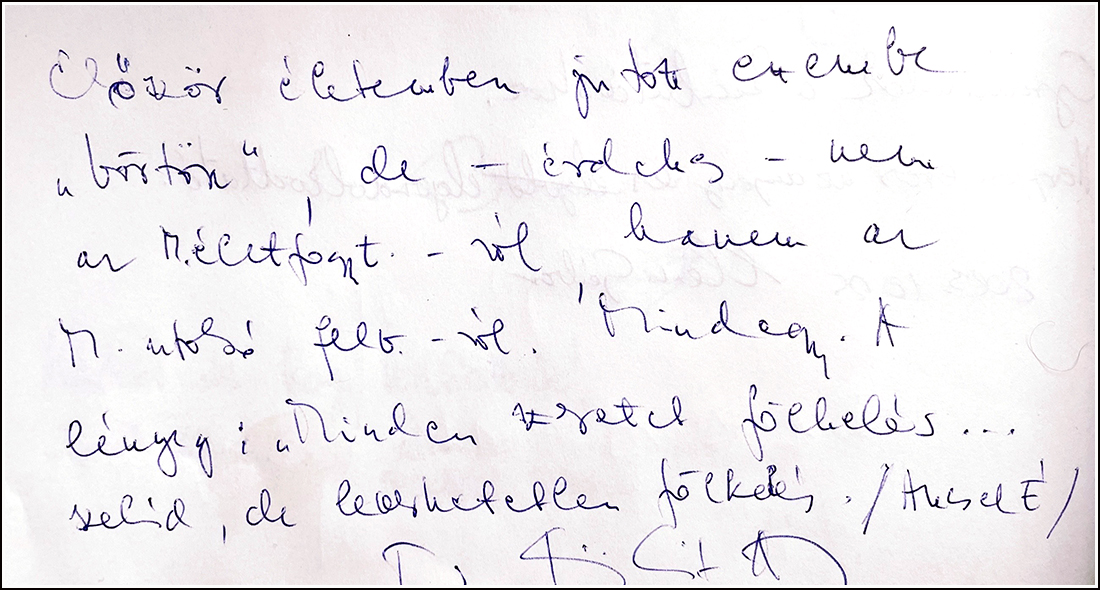 Először életemben jutott eszembe
„börtön", de – érdekes – nem
az M. életfogyt. - ról hanem az
M. utolsó felv. - ról. Mindegy. A
lényeg: „Minden szeretet fölkelés...
szelid, de leverhetetlen fölkelés. / Ancsel É /